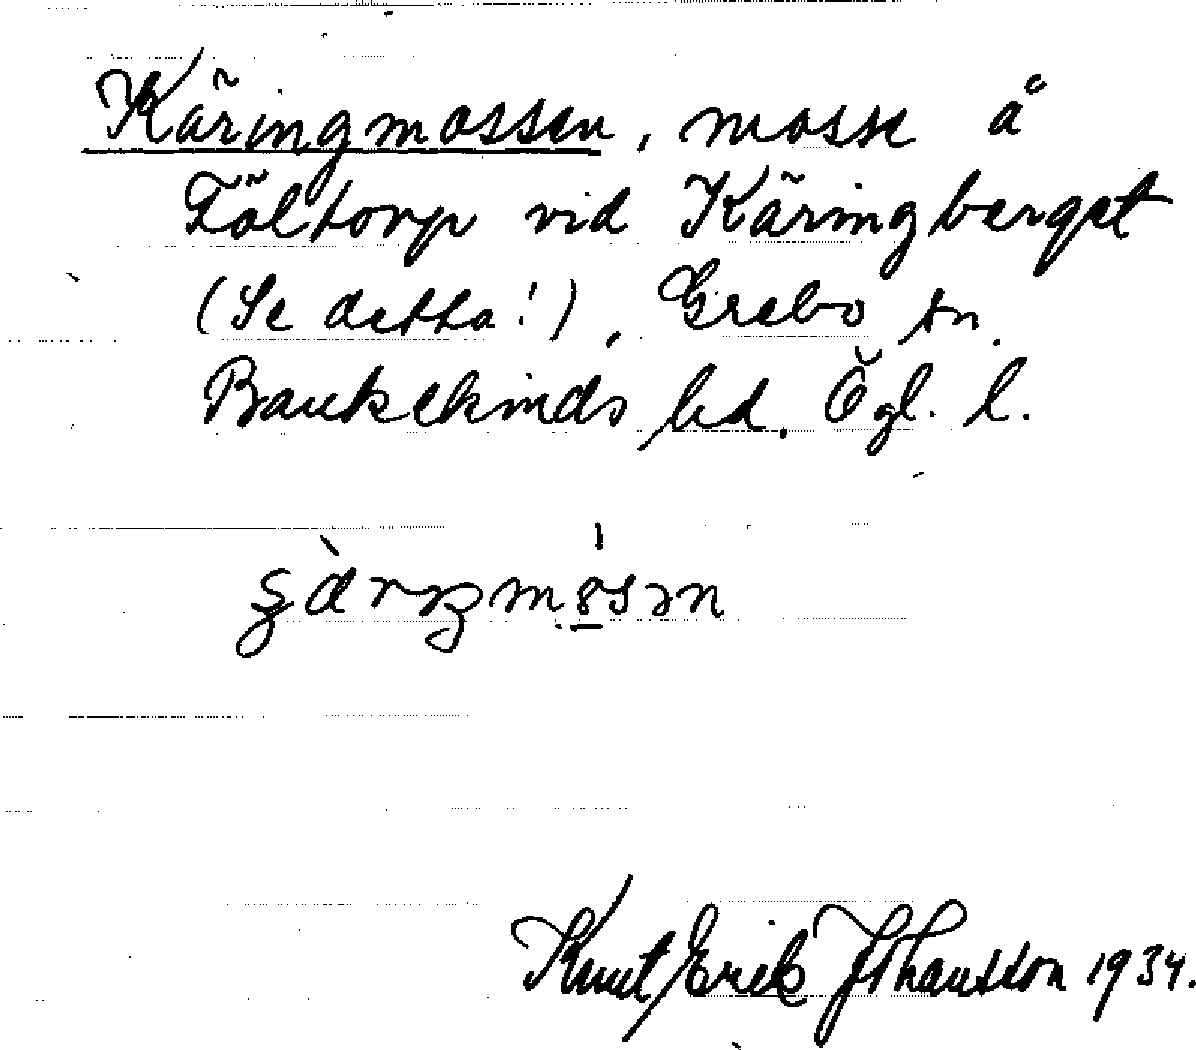 Käringmossen, mosse å
Fältorp vid Käringberget
(Se detta!), Grebo sn.
Bankekinds hd. Ögl. l.
Knut Erik Johansson 1934.